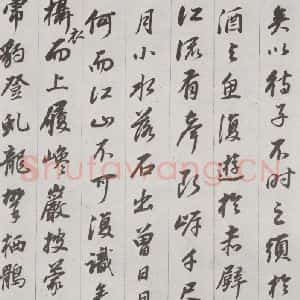 矣以待子不時之須於
酒與魚復遊於赤壁
江流有聲斷岸千尺
月小水落石出曾日月
何而江山不可復識
攝衣而上履巉巖披蒙
虎豹登虬龍攀栖鶻
Shufawang.CN